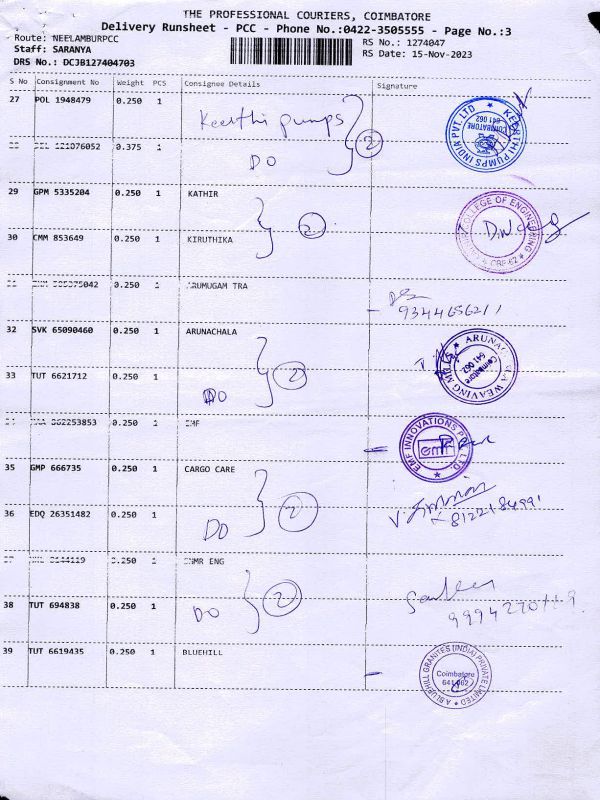 THE PROFESSIONAL COURIERS, COIMBATORE
Delivery Runsheet - PCC - Phone No.:0422-3505555 - Page No.:3
Route: NEELAMBURPCC
RS No.: 1274047
Staff: SARANYA
RS Date: 15-Nov-2023
DRS No.: DCJB127404703
S No Consignment No Weight PCS Consignee Details Signature
27 POL 1948479 0.250 1 Keerthi pumps
KEERTHI PUMPS INDIA PVT. LTD ★ COIMBATORE 641 062
121076052 0.375 1 DO 2
29 GPM 5335204 0.250 1 KATHIR
2
COLLEGE OF ENGINEERING
30 CMM 853649 0.250 1 KIRUTHIKA
0.250 1 ARUMUGAM TRA
9344656211
32 SVK 65090460 0.250 1 ARUNACHALA
ARUNACHALA WEAVING MILLS Coimbatore 641 062
33 TUT 6621712 0.250 1 DO 2
862253853 0.250 1 EMF
EMF INNOVATIONS PVT. LTD. emf
35 GMP 666735 0.250 1 CARGO CARE
36 EDQ 26351482 0.250 1 DO 2
0.250 1 ENG
38 TUT 694838 0.250 1 DO 2
39 TUT 6619435 0.250 1 BLUEHILL
BLUEHILL GRANITES (INDIA) PRIVATE LIMITED Coimbatore 641 062